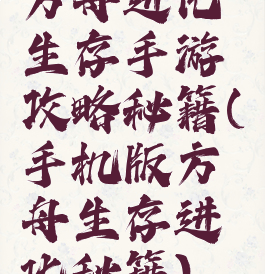 方舟进化
生存手游
攻略秘籍(
手机版方
舟生存进
攻秘籍)